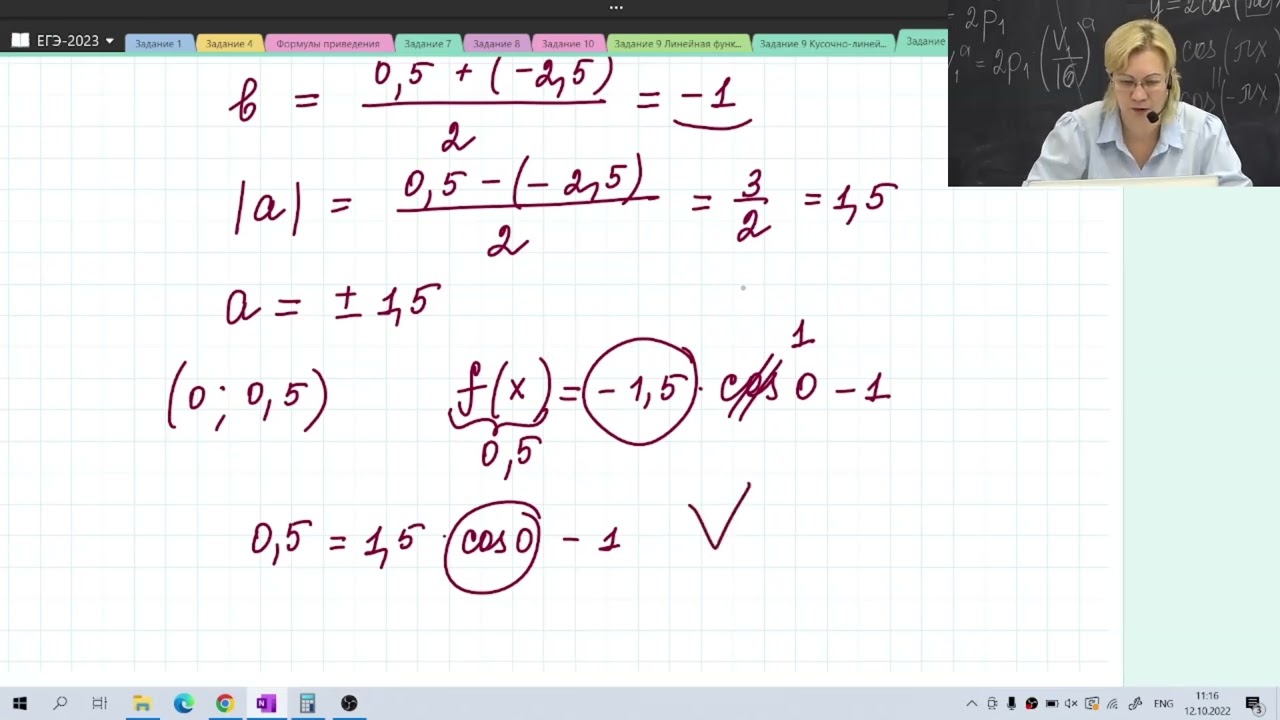 ...
ЕГЭ-2023
Задание 1
Задание 4
Формулы приведения
Задание 7
Задание 8
Задание 10
Задание 9 Линейная функ...
Задание 9 Кусочно-линей...
Задание
в = 0,5 + (-2,5) / 2 = -1
|a| = 0,5 - (-2,5) / 2 = 3/2 = 1,5
a = ± 1,5
1
(0; 0,5) f(x) = -1,5 · cos 0 - 1
0,5
0,5 = 1,5 · cos0 - 1
= 2p₁
= 2p₁ (V₁/16)ᵃ
cos πx
cos(-πx
ENG
11:16
12.10.2022
3